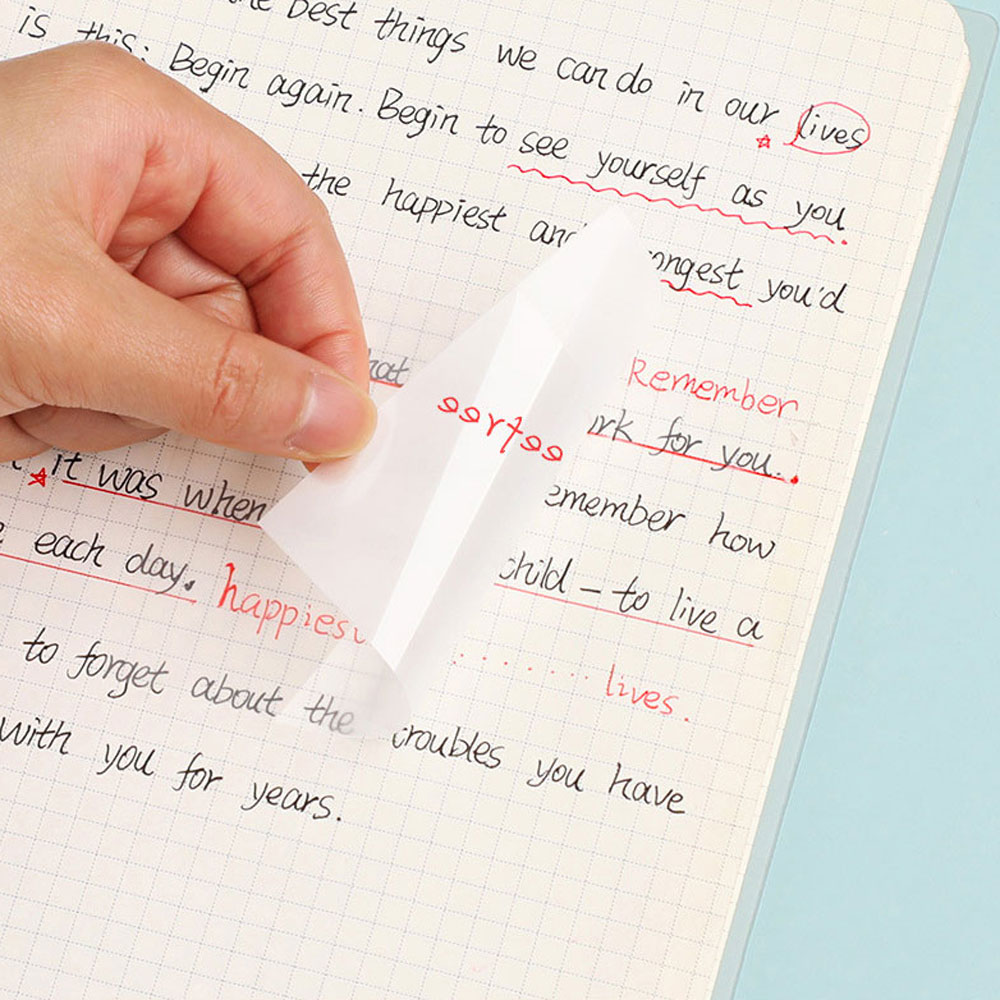 the best things we can do in our lives
is this: Begin again. Begin to see yourself as you
the happiest and you'd
Remember
for you.
it was when remember how
each day. child - to live a
happies lives.
to forget about the troubles you have
with you for years.